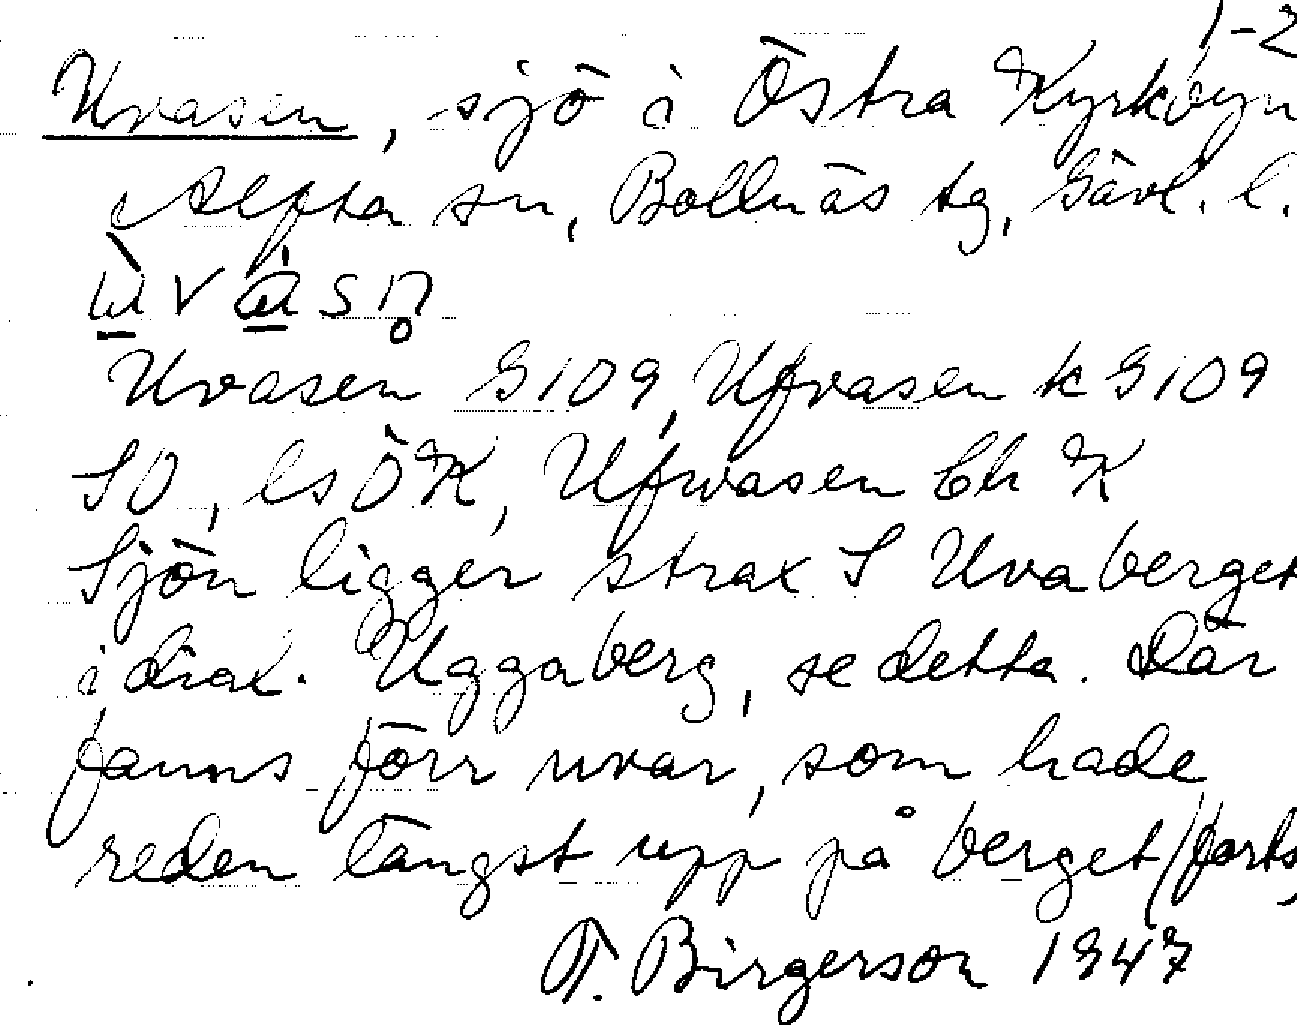 1-2
Uvasen, sjö i Östra Kyrkbyn
Alfta sn, Bollnäs tg, Gävl. l.
Uvasen G109, Ufvasen k G109
SO, ls ÖK, Ufwasen Ch K
Sjön ligger strax S Uvaberget
i dial. Uggaberg, se detta. Där
fanns förr uvar, som hade
reden längst upp på berget (forts,
T. Birgerson 1947